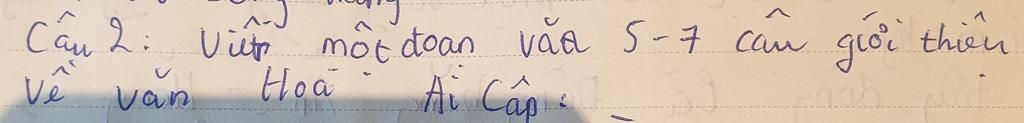 Câu 2: Viết một đoạn văn 5-7 câu giới thiệu
về văn Hoá Ai Cập.